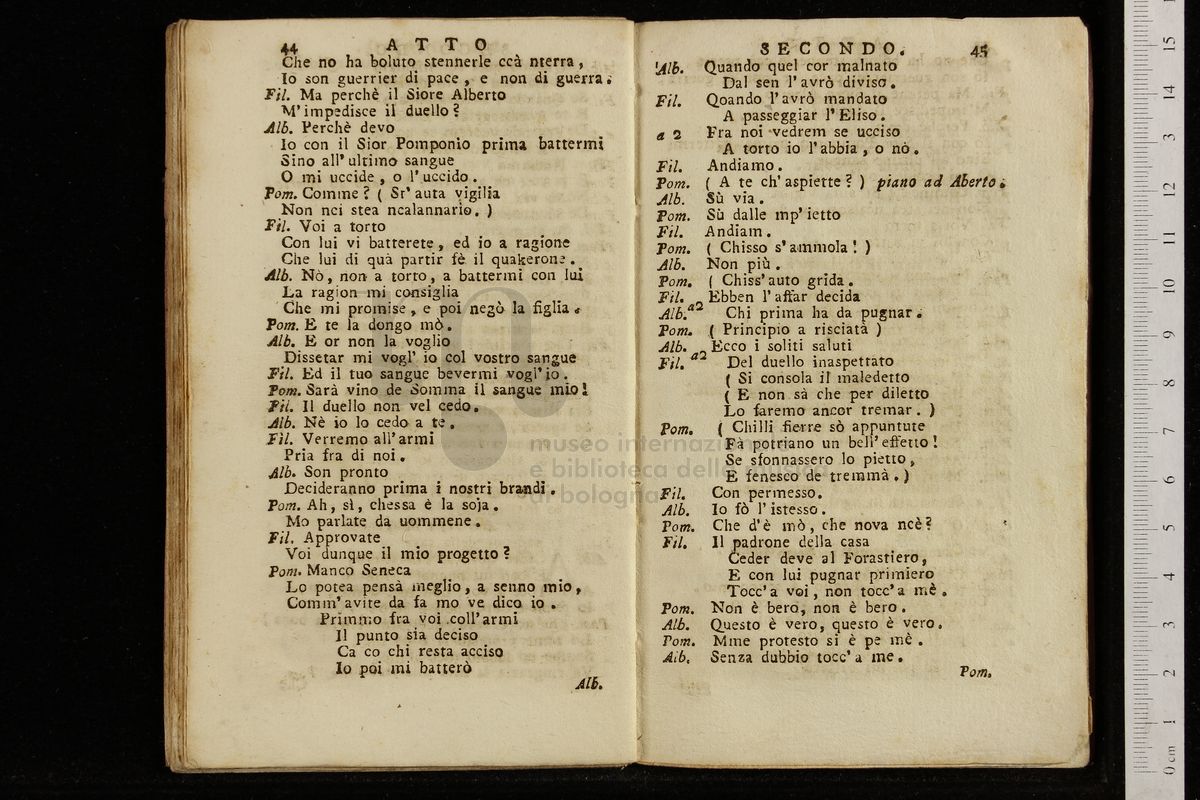 44 ATTO
Che no ha boluto stennerle ccà nterra,
Io son guerrier di pace, e non di guerra.
Fil. Ma perchè il Siore Alberto
M'impedisce il duello?
Alb. Perchè devo
Io con il Sior Pomponio prima battermi
Sino all'ultimo sangue
O mi uccide, o l'uccido.
Pom. Comme? ( St'auta vigilia
Non nci stea ncalannario. )
Fil. Voi a torto
Con lui vi batterete, ed io a ragione
Che lui di quà partir fè il quakerone.
Alb. Nò, non a torto, a battermi con lui
La ragion mi consiglia
Che mi promise, e poi negò la figlia.
Pom. E te la dongo mò.
Alb. E or non la voglio
Dissetar mi vogl'io col vostro sangue
Fil. Ed il tuo sangue bevermi vogl'io.
Pom. Sarà vino de Somma il sangue mio!
Fil. Il duello non vel cedo.
Alb. Nè io lo cedo a te.
Fil. Verremo all'armi
Pria fra di noi.
Alb. Son pronto
Decideranno prima i nostri brandi.
Pom. Ah, sì, chessa è la soja.
Mo parlate da uommene.
Fil. Approvate
Voi dunque il mio progetto?
Pom. Manco Seneca
Lo potea pensà meglio, a senno mio,
Comm'avite da fa mo ve dico io.
Primmo fra voi coll'armi
Il punto sia deciso
Ca co chi resta acciso
Io poi mi batterò
Alb.
SECONDO. 45
Alb. Quando quel cor malnato
Dal sen l'avrò diviso.
Fil. Qoando l'avrò mandato
A passeggiar l'Eliso.
a 2 Fra noi vedrem se ucciso
A torto io l'abbia, o nò.
Fil. Andiamo.
Pom. ( A te ch'aspiette? ) piano ad Aberto.
Alb. Sù via.
Pom. Sù dalle mp'ietto
Fil. Andiam.
Pom. ( Chisso s'ammola! )
Alb. Non più.
Pom. ( Chiss'auto grida.
Fil. Ebben l'affar decida
Alb. a2 Chi prima ha da pugnar.
Pom. ( Principio a risciatà )
Alb. Ecco i soliti saluti
Fil. a2 Del duello inaspettato
( Si consola il maledetto
( E non sà che per diletto
Lo faremo ancor tremar. )
Pom. ( Chilli fierre sò appuntute
Fà potriano un bell'effetto!
Se sfonnassero lo pietto,
E fenesco de tremmà. )
Fil. Con permesso.
Alb. Io fò l'istesso.
Pom. Che d'è mò, che nova ncè?
Fil. Il padrone della casa
Ceder deve al Forastiero,
E con lui pugnar primiero
Tocc'a voi, non tocc'a mè.
Pom. Non è bero, non è bero.
Alb. Questo è vero, questo è vero.
Pom. Mme protesto si è pe mè.
Alb. Senza dubbio tocc'a me.
Pom.